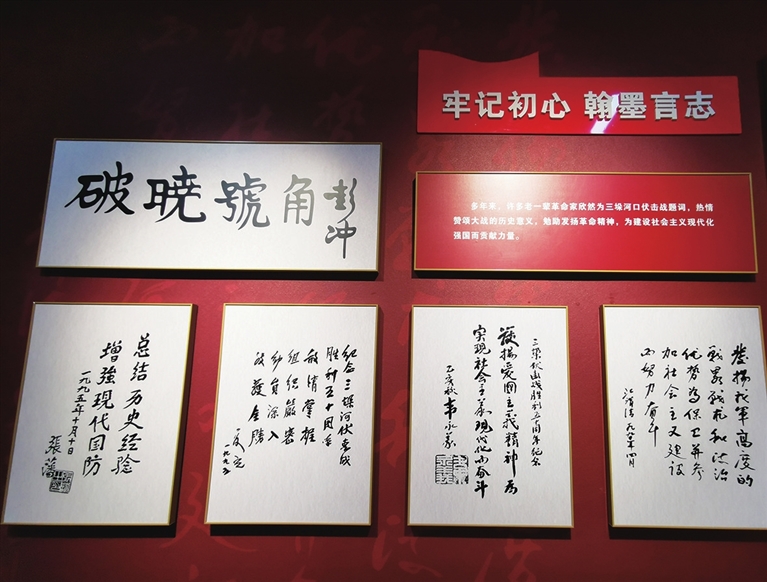 牢记初心 翰墨言志
破曉號角
彭冲
多年来，许多老一辈革命家欣然为三垛河口伏击战题词，热情
赞颂大战的历史意义，勉励发扬革命精神，为建设社会主义现代化
强国而贡献力量。
总结历史经验
增強现代国防
一九九五年十月十日
張藩
纪念三垛河伏击战
胜利五十周年
敌情掌握
组织严密
深入
全勝
一九九五
三垛伏击战胜利五十周年纪念
發揚爱国主義精神为
实现社会主义现代化而奋斗
乙亥秋 韦永义
發揚我军高度的
和政治
优势为保卫并参
加社会主义建设
而努力奋斗
江渭清